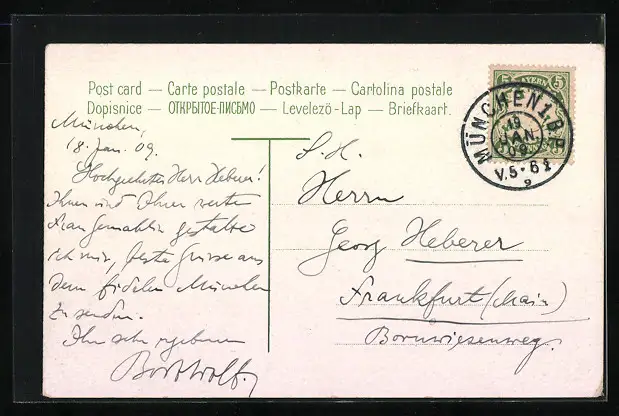 Post card — Carte postale — Postkarte — Cartolina postale
Dopisnice — ОТКРЫТОЕ-ПИСЬМО — Levelezö-Lap — Briefkaart.
5 BAYERN 5
MÜNCHEN 1. B.P.
18
JAN.
09
V. 5-6
München,
18. Jan. 09.
Hochgeehrter Herr Heberer!
Ihnen und Ihrer werten
Frau Gemahlin gestatte
ich mir, beste Grüsse aus
dem fidelen München
zu senden.
Ihr sehr ergebener
S. H.
Herrn
Georg Heberer
Frankfurt (Main)
Bornwiesenweg.